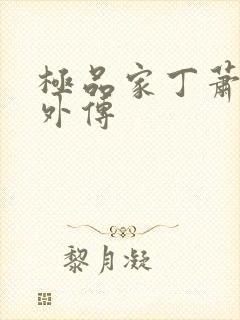 極品家丁蕭
外傳
黎月凝